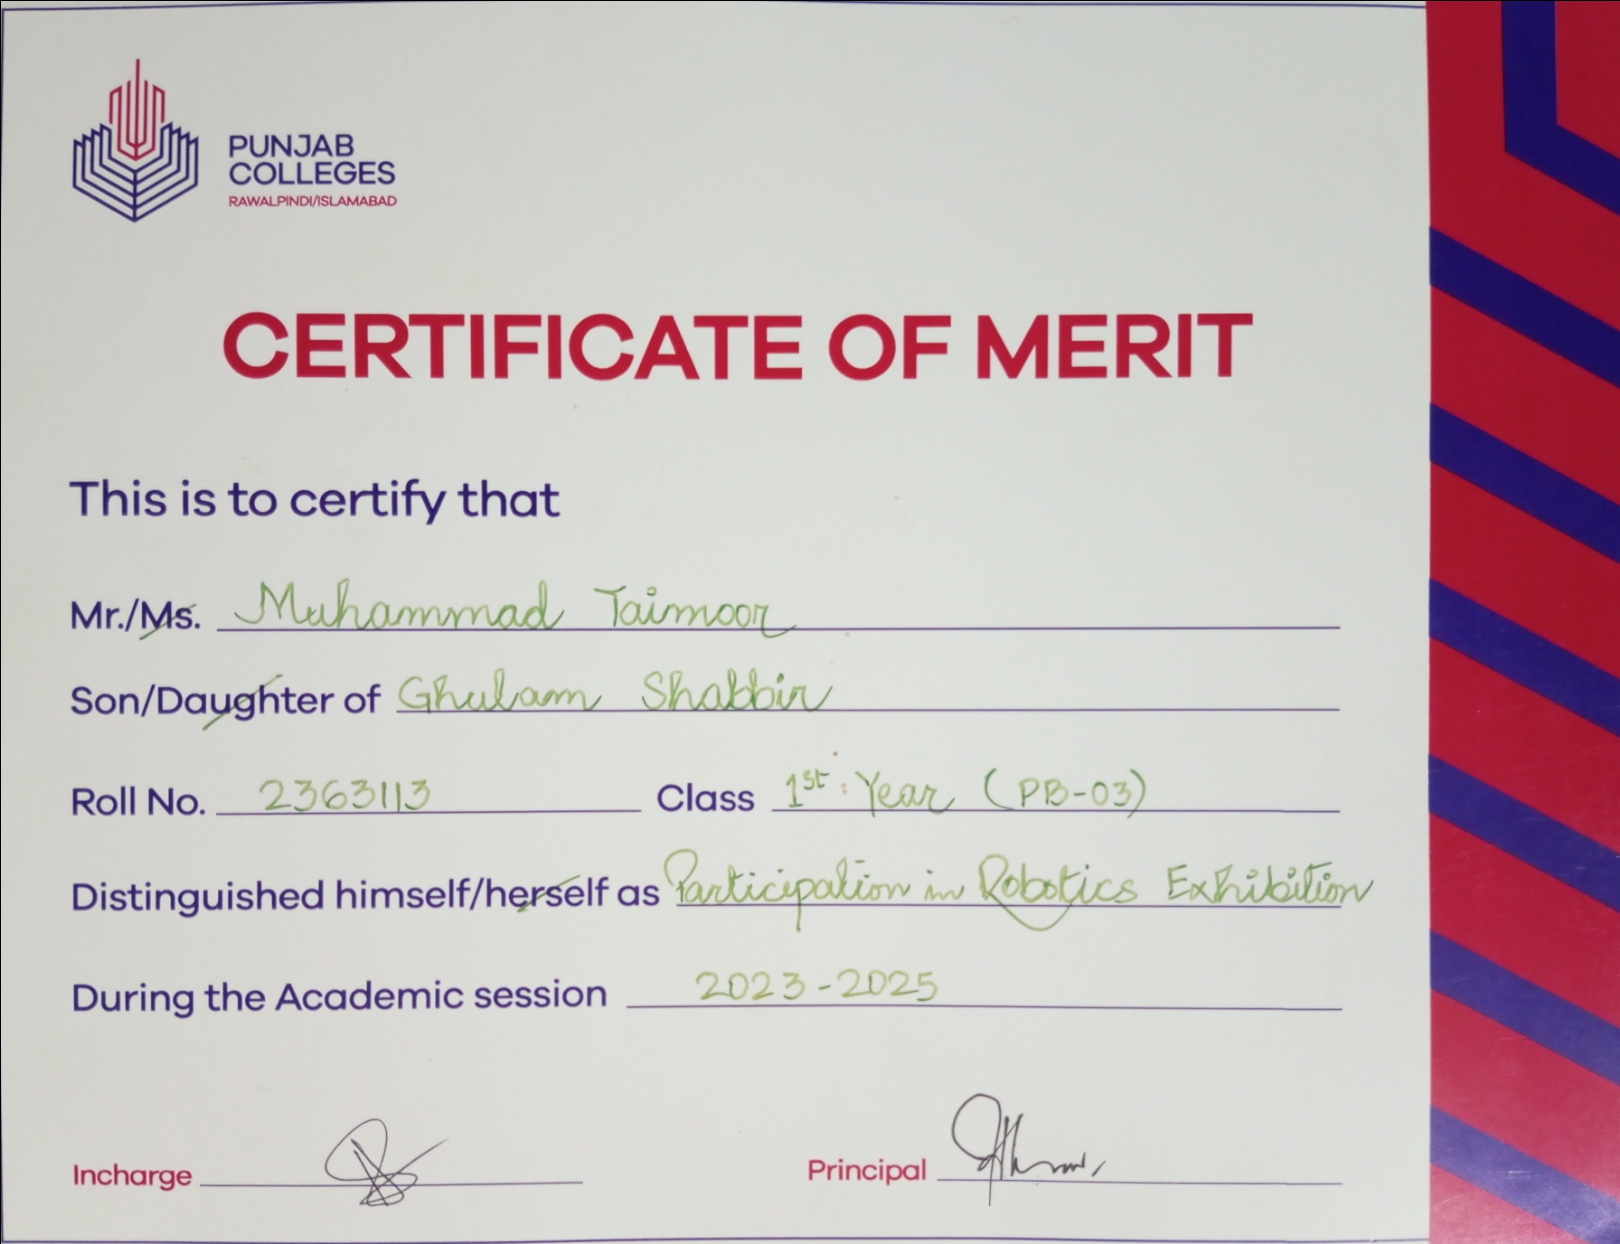 PUNJAB
COLLEGES
RAWALPINDI/ISLAMABAD
CERTIFICATE OF MERIT
This is to certify that
Mr./Ms. Muhammad Taimoor
Son/Daughter of Ghulam Shabbir
Roll No. 2363113 Class 1st Year (PB-03)
Distinguished himself/herself as Participation in Robotics Exhibition
During the Academic session 2023-2025
Incharge Principal